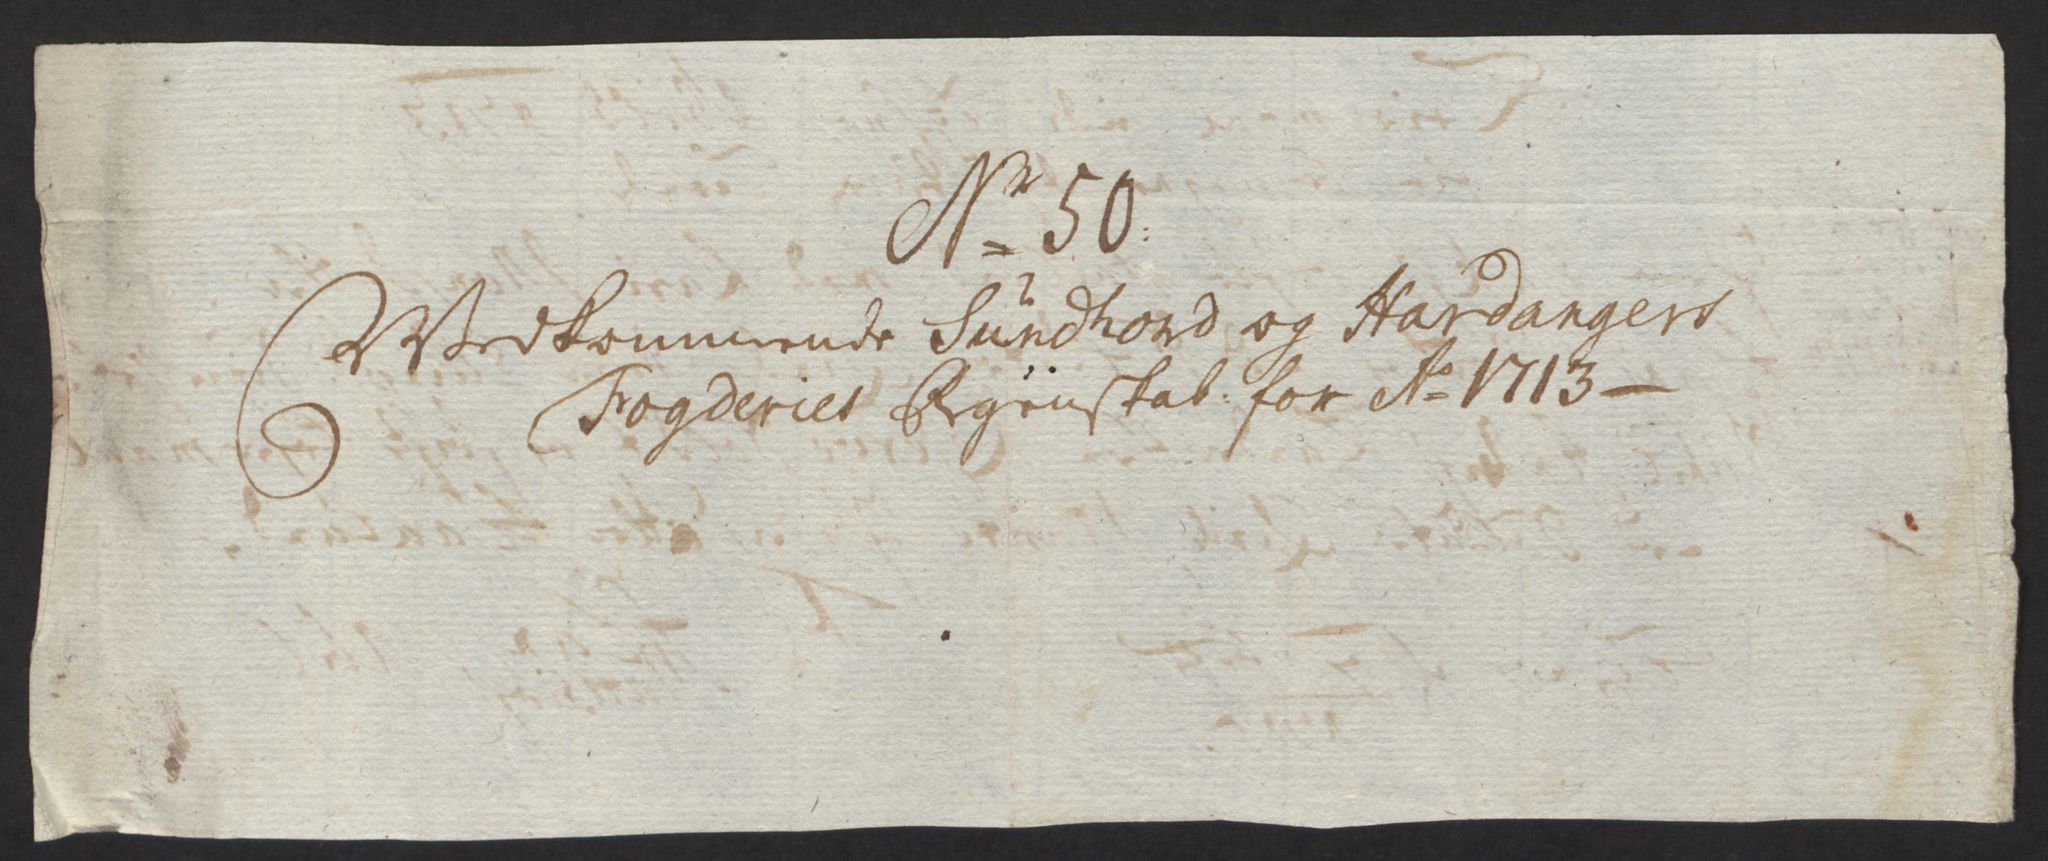 Nr 50:
Vedkommende Sundhord og Hardangers
Fogderies Regenskab: for Ao 1713